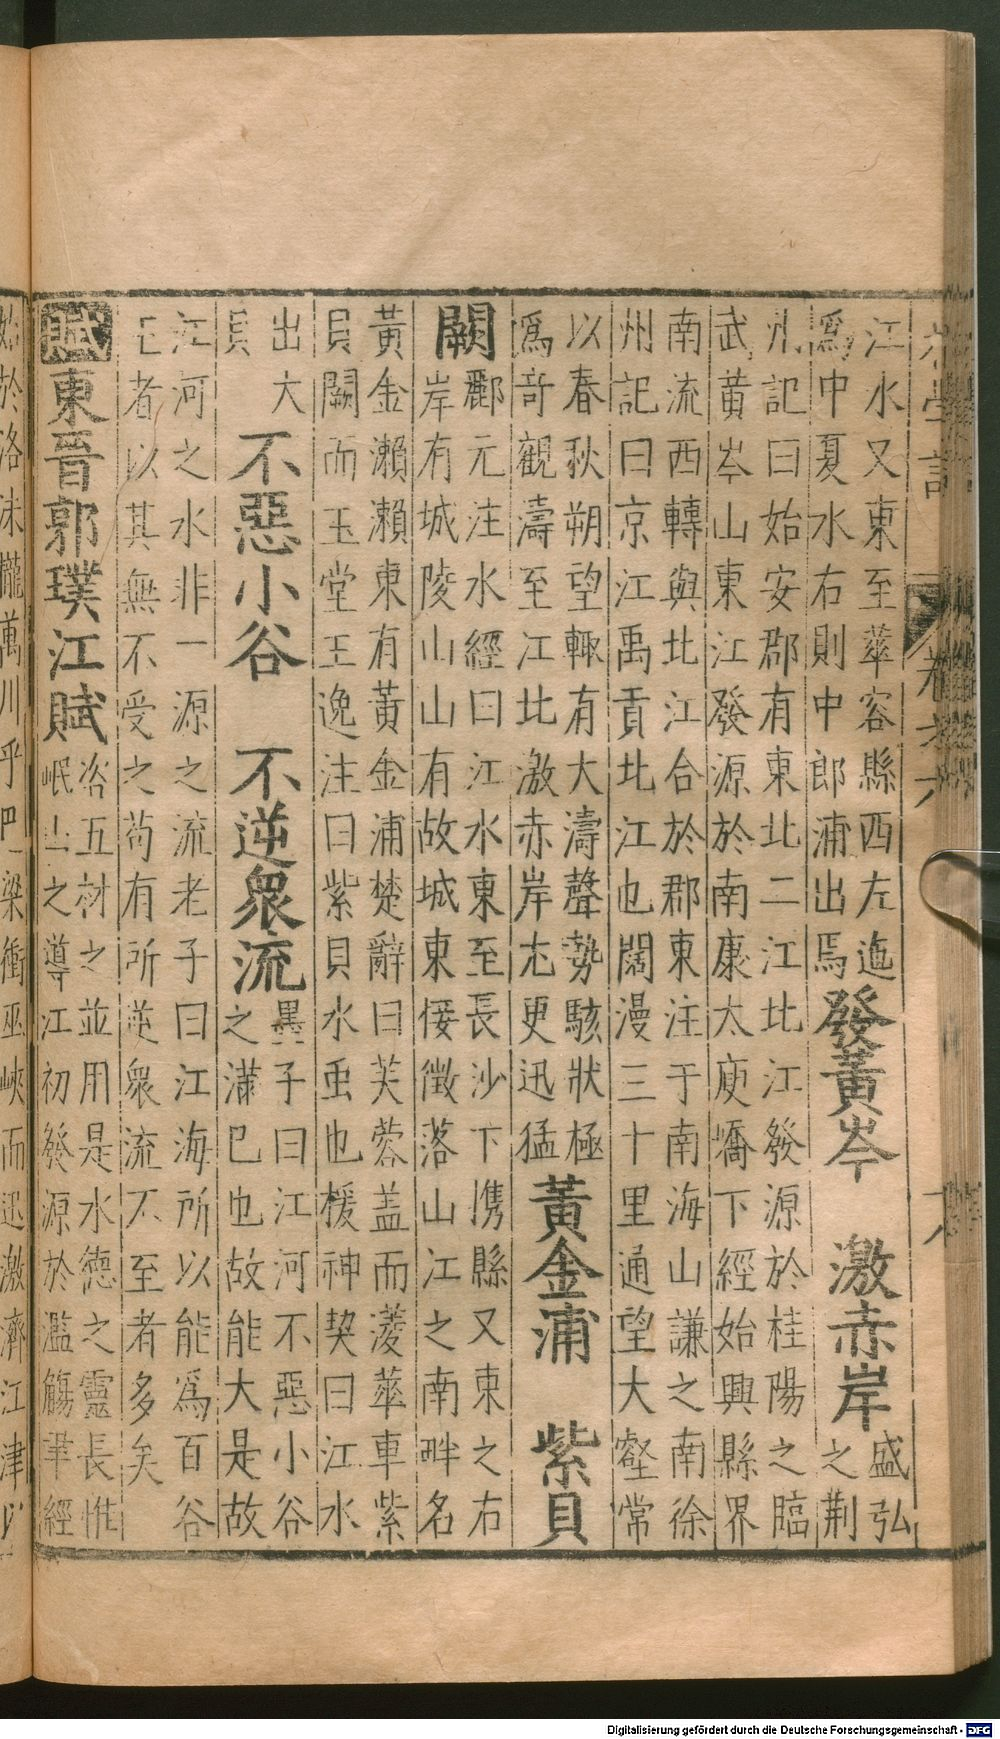 初學記 卷六
江水又東至華容縣西左迤
爲中夏水右則中郎浦出焉
發黃岑 激赤岸
盛弘
之荆
州記曰始安郡有東北二江北江發源於桂陽之臨
武黃岑山東江發源於南康大庾嶠下經始興縣界
南流西轉與北江合於郡東注于南海山謙之南徐
州記曰京江禹貢北江也闊漫三十里通望大壑常
以春秋朔望輒有大濤聲勢駭狀極
爲竒觀濤至江北激赤岸尤更迅猛
黃金浦 紫貝
闕
酈元注水經曰江水東至長沙下㒞縣又東之右
岸有城陵山山有故城東接微落山江之南畔名
黃金瀨瀨東有黃金浦楚辭曰芙蓉盖而蓤華車紫
貝闕而玉堂王逸注曰紫貝水虫也援神契曰江水
出大
貝
不惡小谷 不逆衆流
墨子曰江河不惡小谷
之滿已也故能大是故
江河之水非一源之流老子曰江海所以能爲百谷
王者以其無不受之苟有所逆衆流不至者多矣
賦東晉郭璞江賦
咨五材之並用是水德之靈長惟
岷山之導江初發源於濫觴聿經
始於洛沬攏萬川乎巴梁衝巫峽而迅激濟江津以
Digitalisierung gefördert durch die Deutsche Forschungsgemeinschaft - DFG